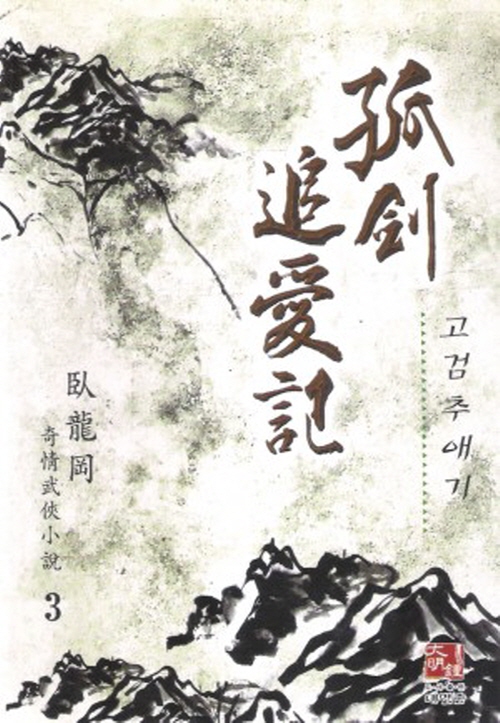 孤剑
追愛記
고검추애기
臥龍岡
奇情武俠小說
3
大明鐘
대명종